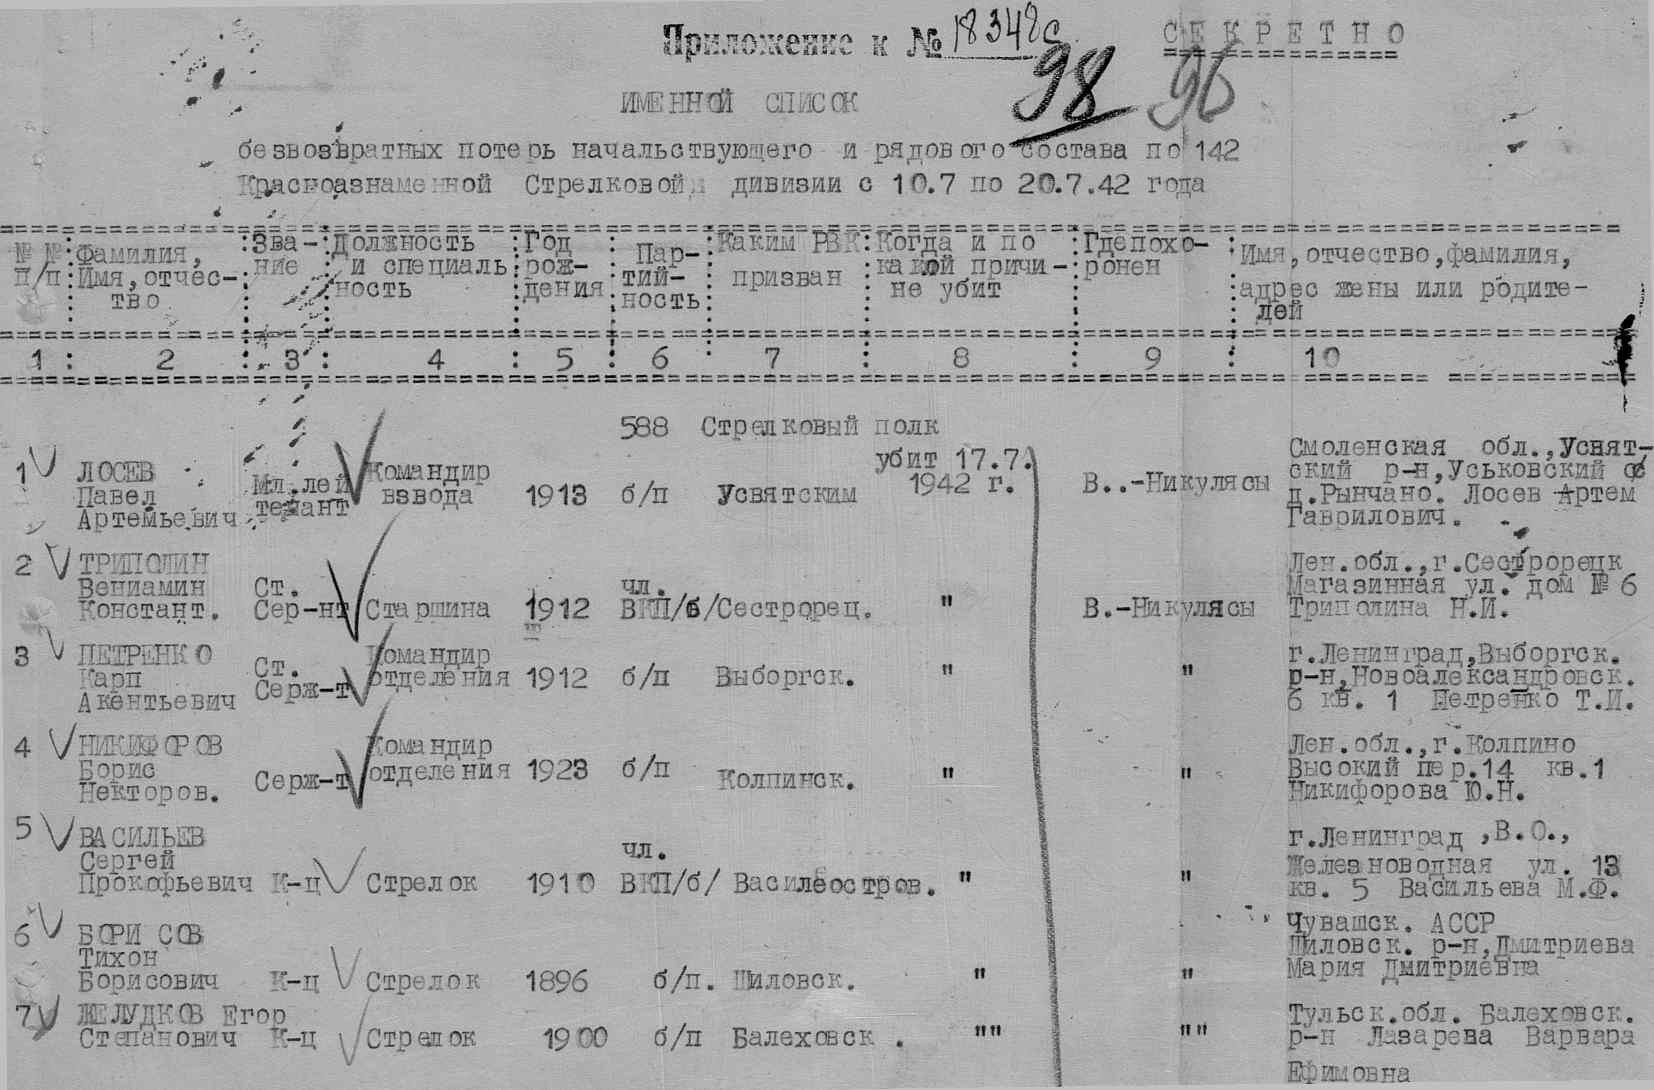 Приложение к № 18342с
СЕКРЕТНО
98 96
ИМЕННОЙ СПИСОК
безвозвратных потерь начальствующего и рядового состава по 142
Краснознаменной Стрелковой дивизии с 10.7 по 20.7.42 года
№ № п/п : Фамилия, Имя, отчес- тво : Зва- ние : Должность и специаль ность : Год рож- дения : Пар- тий- ность : Каким РВК призван : Когда и по какой причи- не убит : Где похо- ронен : Имя, отчество, фамилия, адрес жены или родите- лей
1 : 2 : 3 : 4 : 5 : 6 : 7 : 8 : 9 : 10
588 Стрелковый полк
1 ЛОСЕВ Павел Артемьевич Мл.лей тенант Командир взвода 1913 б/п Усвятским убит 17.7. 1942 г. В..-Никулясы Смоленская обл., Усвят- ский р-н, Уськовский д.Рынчано. Лосев Артем Гаврилович.
2 ТРИПОЛИН Вениамин Констант. Ст. Сер-нт Старшина 1912 чл. ВКП/б/ Сестрорец. " В.-Никулясы Лен.обл.,г.Сестрорецк Магазинная ул. дом № 6 Триполина Н.И.
3 ПЕТРЕНКО Карп Акентьевич Ст. Серж-т Командир отделения 1912 б/п Выборгск. " " г.Ленинград,Выборгск. р-н,Новоалександровск. 6 кв. 1 Петренко Т.И.
4 НИКИФОРОВ Борис Некторов. Серж-т Командир отделения 1923 б/п Колпинск. " " Лен.обл.,г.Колпино Высокий пер.14 кв.1 Никифорова Ю.Н.
5 ВАСИЛЬЕВ Сергей Прокофьевич К-ц Стрелок 1910 чл. ВКП/б/ Василеостров. " " г.Ленинград ,В.О., Железноводная ул. 13 кв. 5 Васильева М.Ф.
6 БОРИСОВ Тихон Борисович К-ц Стрелок 1896 б/п. Шиловск. " " Чувашск. АССР Шиловск. р-н,Дмитриева Мария Дмитриевна
7 ЖЕЛУДКОВ Егор Степанович К-ц Стрелок 1900 б/п Балеховск . "" "" Тульск.обл. Балеховск. р-н Лазарева Варвара Ефимовна